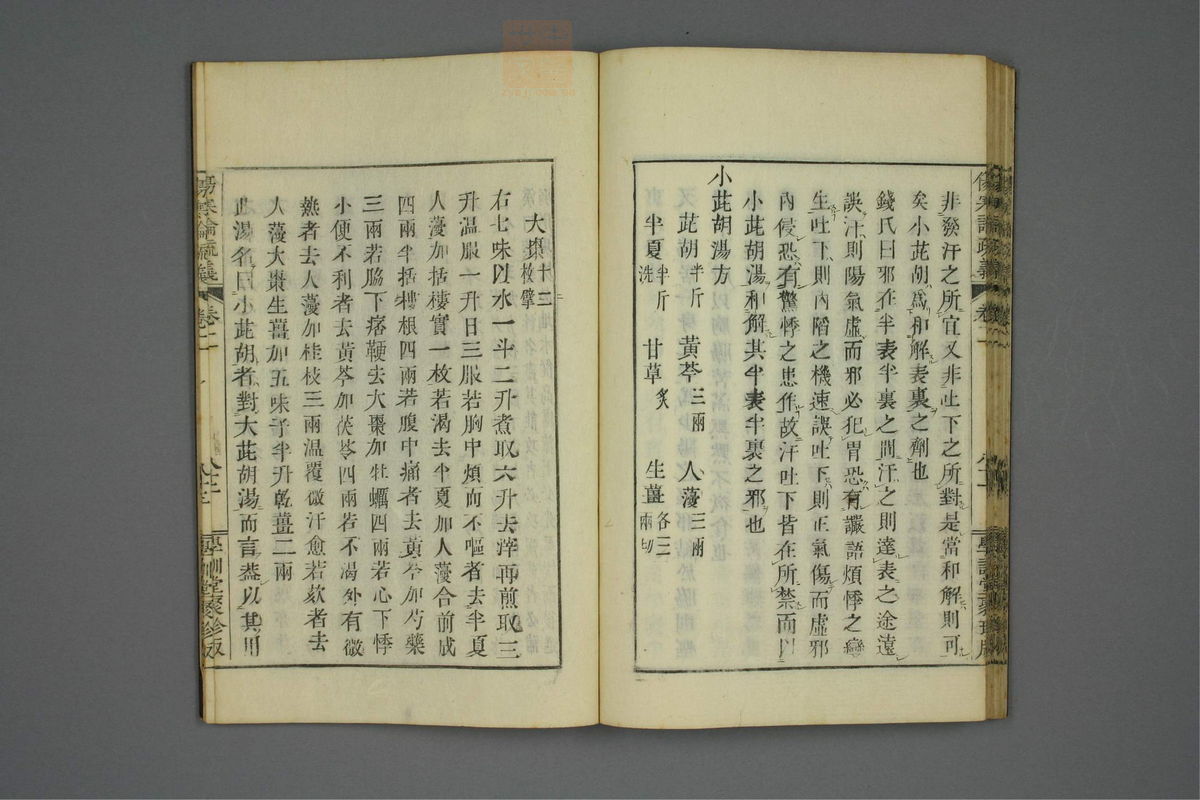 非發汗之所宜又非吐下之所對是當和解則可
矣小茈胡爲和解表裏之劑也
錢氏曰邪在半表半裏之閒汗之則達表之途遠
誤汗則陽氣虛而邪必犯胃恐有讝語煩悸之變
生吐下則內陷之機速誤吐下則正氣傷而虛邪
內侵恐有驚悸之患作故汗吐下皆在所禁而以
小茈胡湯和解其半表半裏之邪也
小茈胡湯方
茈胡半斤 黃芩三兩 人蓡三兩
半夏半斤洗 甘草炙 生薑各三兩切
大棗十二枚擘
右七味以水一斗二升煮取六升去滓再煎取三
升溫服一升日三服若胸中煩而不嘔者去半夏
人蓡加栝樓實一枚若渴去半夏加人蓡合前成
四兩半栝樓根四兩若腹中痛者去黃芩加芍藥
三兩若脇下痞鞕去大棗加牡蠣四兩若心下悸
小便不利者去黃芩加茯苓四兩若不渴外有微
熱者去人蓡加桂枝三兩溫覆微汗愈若欬者去
人蓡大棗生薑加五味子半升乾薑二兩
此湯名曰小茈胡者對大茈胡湯而言葢以其用
傷寒論疏義 卷二 學訓堂聚珍版